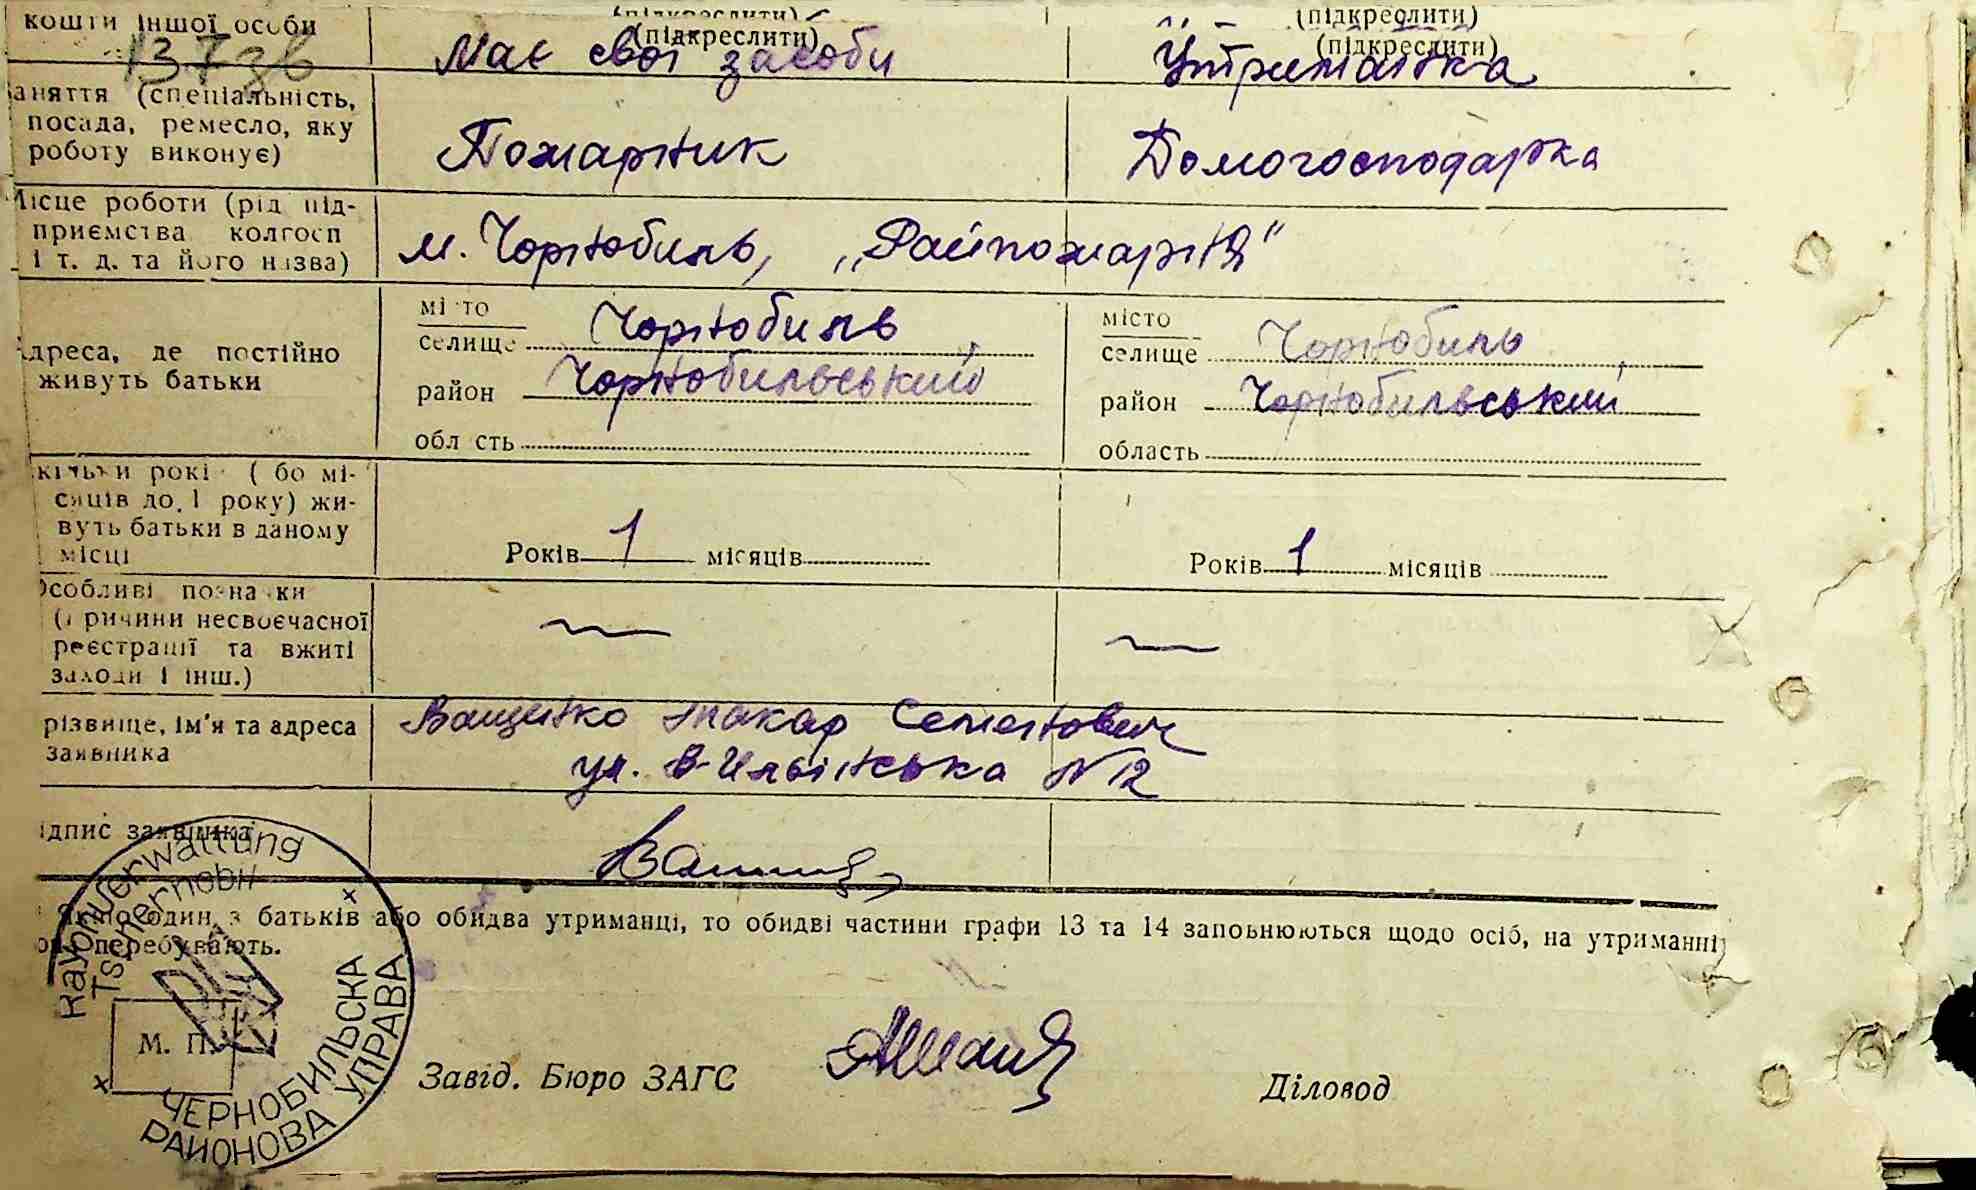 (підкреслити) (підкреслити)
кошти іншої особи (підкреслити) (підкреслити)
137зв Має свої засоби Утриманка
аняття (спеціальність,
посада, ремесло, яку
роботу виконує)
Пожарник Домогосподарка
Місце роботи (рід під-
приємства колгосп
і т. д. та його назва)
м. Чорнобиль, „Райпожарня"
Адреса, де постійно
живуть батьки
мі то Чорнобиль місто Чорнобиль
селище селище
район Чорнобильський район Чорнобильський
обл сть область
кільки рокі ( бо мі-
сяців до 1 року) жи-
вуть батьки в даному
місці
Років 1 місяців Років 1 місяців
Особливі позна ки
( ричини несвоєчасної
реєстрації та вжиті
заходи і інш.)
різвище, ім'я та адреса
заявника
Ващенко Макар Семенович
ул. В-Ильінська N 12
ідпис заявника
Rayonverwaltung
Tschernobil
Якщо один з батьків або обидва утриманці, то обидві частини графи 13 та 14 заповнюються щодо осіб, на утриманні
перебувають.
М. П.
ЧЕРНОБИЛЬСКА
РАЙОНОВА УПРАВА
Завід. Бюро ЗАГС Діловод